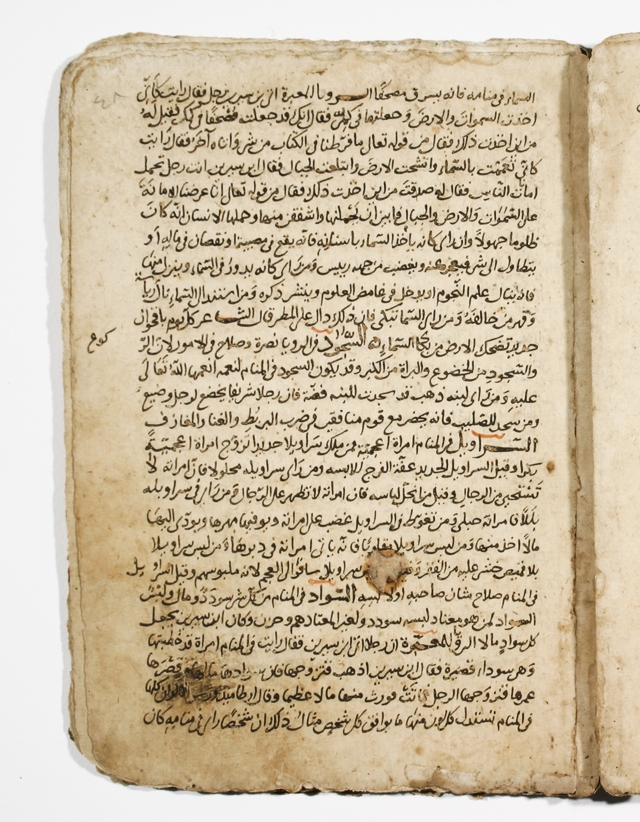 السماء في منامه فانه يسرق مصحفا الرويا المعبرة اتى ابن سيرين رجل فقال رايت كأني
اخذت السموات والارض وجعلتها في كمي فقال انك قد جعلت مصحفا في كمك فقيل له
من اين اخذت ذلك فقال من قوله تعالى ما فرطنا في الكتاب من شيء واتاه آخر فقال رايت
كاني تعممت بالسماء واتشحت الارض وابتلعت الجبال فقال ابن سيرين انت رجل تحمل
امانات الناس فقال له صدقت من اين اخذت ذلك فقال من قوله تعالى انا عرضنا الامانة
على السموات والارض والجبال فابين ان يحملنها واشفقن منها وحملها الانسان انه كان
ظلوما جهولا وان راى كانه ياخذ السماء باسنانه فانه يقع في مصيبة او نقصان في ماله او
يتطاول الى شيء فيعجز عنه ويغضب من جهة رييس ومن راى كانه يدور في السماء وينزل منها
فانه ينال علم النجوم او يدخل في غامض العلوم وينشر ذكره ومن استند الى السماء نال رياسة
وقهر من خالفه ومن راى السماء تبكي فان ذلك دال على المطر قال الشاعر كل يوم باقحوان
جديد تضحك الارض من بكا السماء السجود في الرويا نصرة وصلاح في الامور لان
والسجود من الخضوع والبراة من الكبر وقد يكون السجود في المنام لنعمة انعمها الله تعالى
عليه ومن راى لبنة ذهب قد سجدت للبنة فضة فان رجلا شريفا يخضع لرجل وضيع
ومن سجد للصليب فانه يحضر مع قوم منافقين في ضرب البربط والغنا والمعازف
السراويل في المنام امراة اعجمية فمن ملك سراويلا جديدا تزوج امراة اعجمية
بكرا وقيل السراويل الجديد عفة الفرج للابسه ومن راى سراويله محلولا فان امراته لا
تستخفي من الرجال وقيل من انحل لباسه فان امراته لا تظهر على الرجال ومن راى في سراويله
بللا فامراته حبلى ومن تغوط في السراويل غضب على امراته ويوفيها مهرها ويودي اليها
مالا اخذ منها ومن لبس سراويلا مقلوبا فانه ياتي امراته في دبرها ومن لبس سراويلا
بلا قميص خشي عليه من الفقر سراويلا سافر الى العجم لانه ملبوسهم وقيل السراويل
في المنام صلاح شان صاحبه اولابسه السواد في المنام من كل شيء سودد ومال ولبس
السواد لمن هو معتاد لبسه سودد ولغير المعتاد هم وحزن وكان ابن سيرين يجعل
كل سواد مالا الرويا المعبرة ان رجلا اتى ابن سيرين فقال رايت في المنام امراة قد خطبتها
وهي سوداء قصيرة فقال ابن سيرين اذهب فتزوجها فان سوادها مالها وقصرها
عمرها فتزوجها الرجل فماتت فورث منها مالا عظيما وقال
في المنام تستدل كل لون منها ما يوافق كل شخص مثال ذلك ان شخصا راى في منامه كان